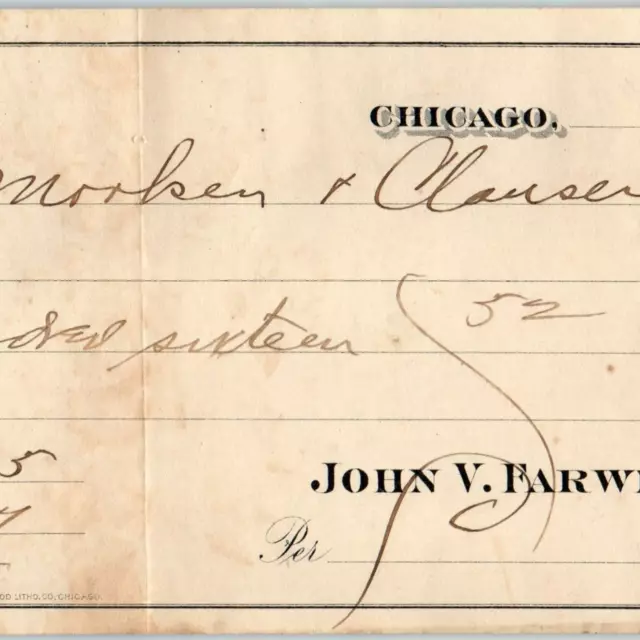 CHICAGO,
& Clausen
dred sixteen 52
5
JOHN V. FARW
Per
OD LITHO. CO, CHICAGO.